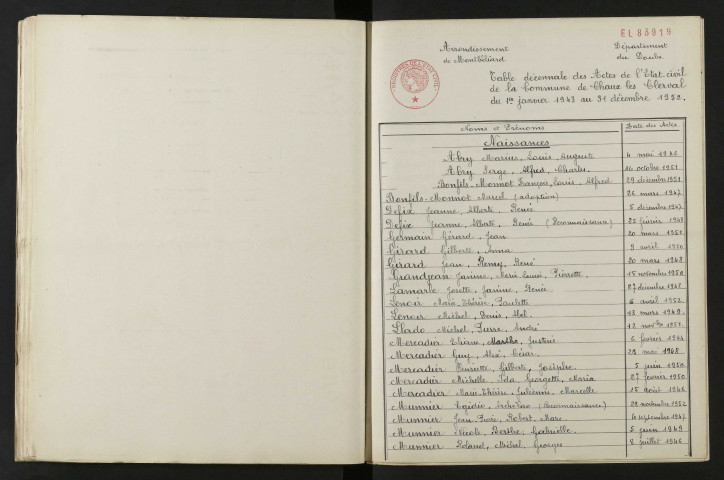 EL 83919
Arrondissement de Montbéliard
Département du Doubs
Table décennale des Actes de l'Etat civil
de la Commune de Chaux les Clerval
du 1er janvier 1943 au 31 décembre 1952.
Noms et Prénoms Date des Actes
Naissances
Abry Marius, Louis Auguste 4 mai 1946
Abry Serge, Alfred, Charles 14 octobre 1951
Bonfils-Monnot François, Louis, Alfred 29 décembre 1951
Bonfils-Monnot Marcel (adoption) 26 mars 1947
Defix Jeanne, Alberte, Renée 5 décembre 1947
Defix Jeanne, Alberte, Renée (Reconnaissance) 25 février 1948
Germain Gérard, Jean 20 mars 1951
Girard Gilberte, Anna 9 avril 1950
Girard Jean, Remy, René 20 mars 1948
Grandjean Janine, Marie Louise, Pierrette 15 novembre 1950
Lamarle Josette, Janine, Renée 27 décembre 1948
Lenoir Marie-Thérèse, Paulette 6 avril 1952
Lenoir Michel, Denis, Abel 13 mars 1949
Llado Michel, Pierre, André 12 novbre 1951
Mercadier Eliane, Marthe, Justine 6 février 1944
Mercadier Guy, Aimé, César 29 mai 1948
Mercadier Henriette, Gilberte, Josèphe 5 juin 1950
Mercadier Michelle, Ida, Georgette, Maria 27 février 1950
Mercadier Marie-Thérèse, Julienne, Marcelle 15 août 1946
Munnier Egidio, (Reconnaissance) 22 novembre 1952
Munnier Jean-Pierre, Robert, Marc 4 septembre 1947
Munnier Nicole, Berthe, Gabrielle 5 juin 1949
Munnier Roland, Michel, Georges 8 juillet 1946